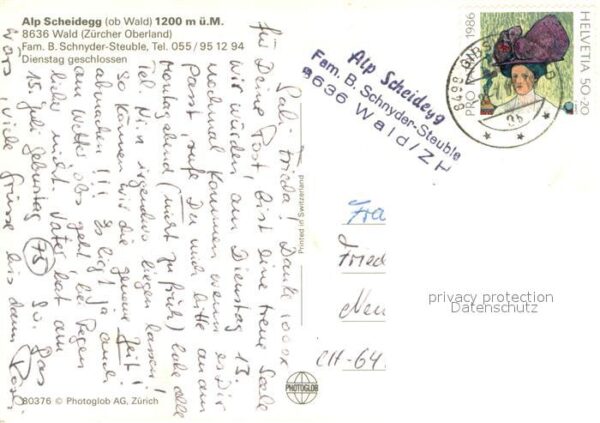 Alp Scheidegg (ob Wald) 1200 m ü.M.
8636 Wald (Zürcher Oberland)
Fam. B. Schnyder-Steuble, Tel. 055/95 12 94
Dienstag geschlossen
Sali Frieda! Danke 1000x
für Deine Post, bist eine treue Seele
wir würden am Dienstag 13.
nochmal kommen wenn es Dir
passt, rufe Du mich bitte an am
Montagabend (nicht zu früh) habe alle
Tel. Nr. irgendwo liegen lassen!
So können wir die genaue Zeit!
abmachen!!! Es liegt ja auch
am Wetter obs geht bei Regen
lieber nicht. Vater hat am
15. Juli Geburtstag (75) So. das
wärs, viele Grüsse bis dann Rosi
80376 © Photoglob AG, Zürich
Printed in Switzerland
PHOTOGLOB
Alp Scheidegg
Fam. B. Schnyder-Steuble
8636 Wald/ZH
PRO
1986
HELVETIA 50+20
8499
Fra
Fried
Neu
CH-64
privacy protection
Datenschutz